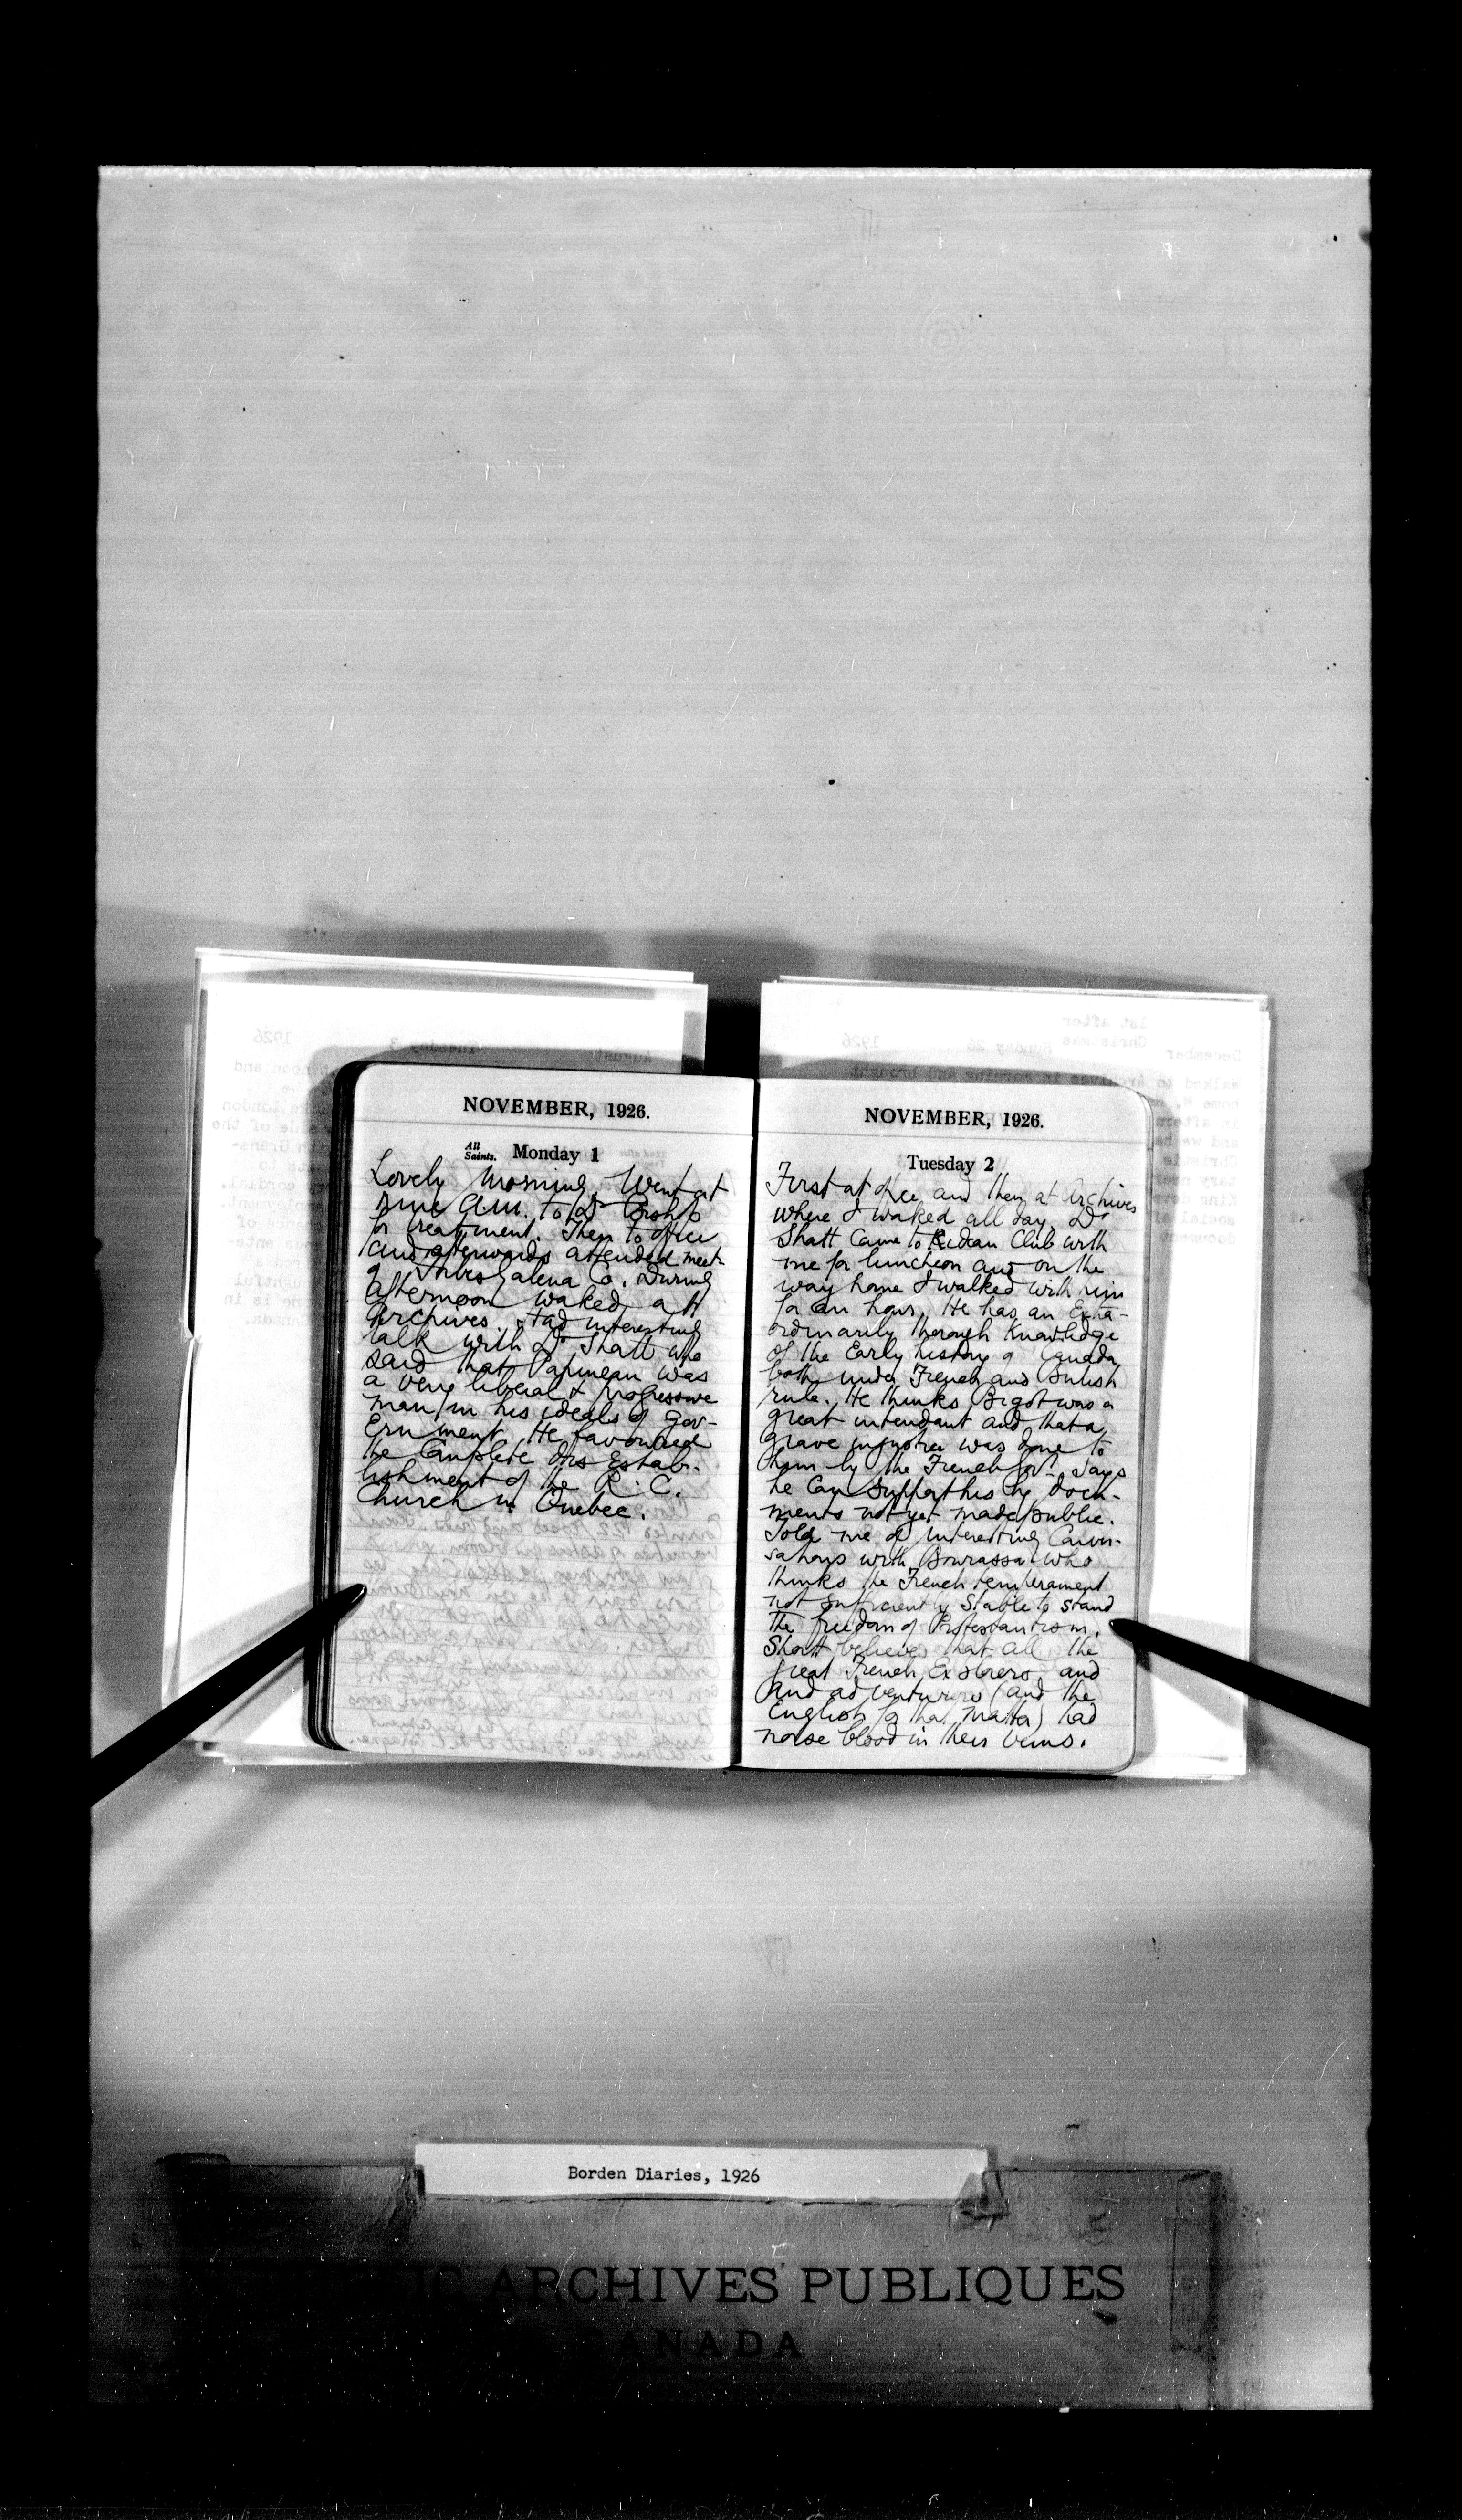 NOVEMBER, 1926.
All Saints. Monday 1
Lovely morning. Went at
nine a.m. to Dr
for treatment. Then to office
and afterwards attended meet-
g Galena Co. During
afternoon worked at
Archives. Had interesting
talk with Dr Shortt who
said that Papineau was
a very liberal & progressive
man in his ideals of gov-
ernment. He favoured
the complete dis estab-
lishment of the R. C.
Church in Quebec.
NOVEMBER, 1926.
Tuesday 2
First at office and then at Archives
where I worked all day. Dr
Shortt came to Rideau Club with
me for luncheon and on the
way home I walked with him
for an hour. He has an extra-
ordinarily thorough knowledge
of the early history of Canada
both under French and British
rule. He thinks Bigot was a
great intendant and that a
grave injustice was done to
him by the French Govt. Says
he can support his by docu-
ments not yet made public.
Told me of interesting conver-
sations with Bourassa who
thinks the French temperament
not sufficiently stable to stand
the freedom of Protestantism.
Shortt believes that all the
great French explorers, and
and adventurers (and the
English for that matter) had
norse blood in their veins.
Borden Diaries, 1926
ARCHIVES PUBLIQUES
CANADA